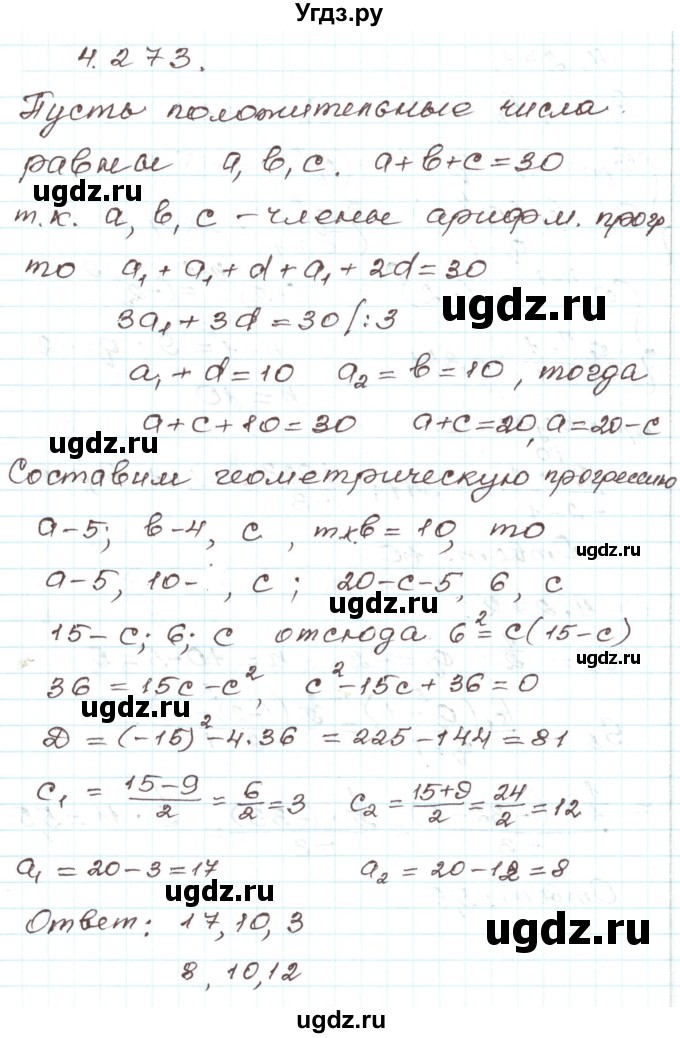 Угдз.ру
4.273.
Пусть положительные числа
равны a, b, c. a+b+c=30
ugdz.ru
т.к. a, b, c – члены арифм. прогр
то a₁+a₁+d+a₁+2d=30
ugdz.ru
3a₁+3d=30/:3
a₁+d=10 a₂=b=10, тогда
a+c+10=30 a+c=20, a=20-c
ugdz.ru
Составим геометрическую прогрессию
a-5; b-4, c, т.к. b=10, то
ugdz.ru
a-5, 10- , c; 20-c-5, 6, c
ugdz.ru
15-c; 6; c отсюда 6²=c(15-c)
ugdz.ru
36=15c-c², c²-15c+36=0
ugdz.ru
D=(-15)²-4·36=225-144=81
c₁=(15-9)/2=6/2=3 c₂=(15+9)/2=24/2=12
a₁=20-3=17 a₂=20-12=8
ugdz.ru
Ответ: 17, 10, 3
ugdz.ru
8, 10, 12
ugdz.ru